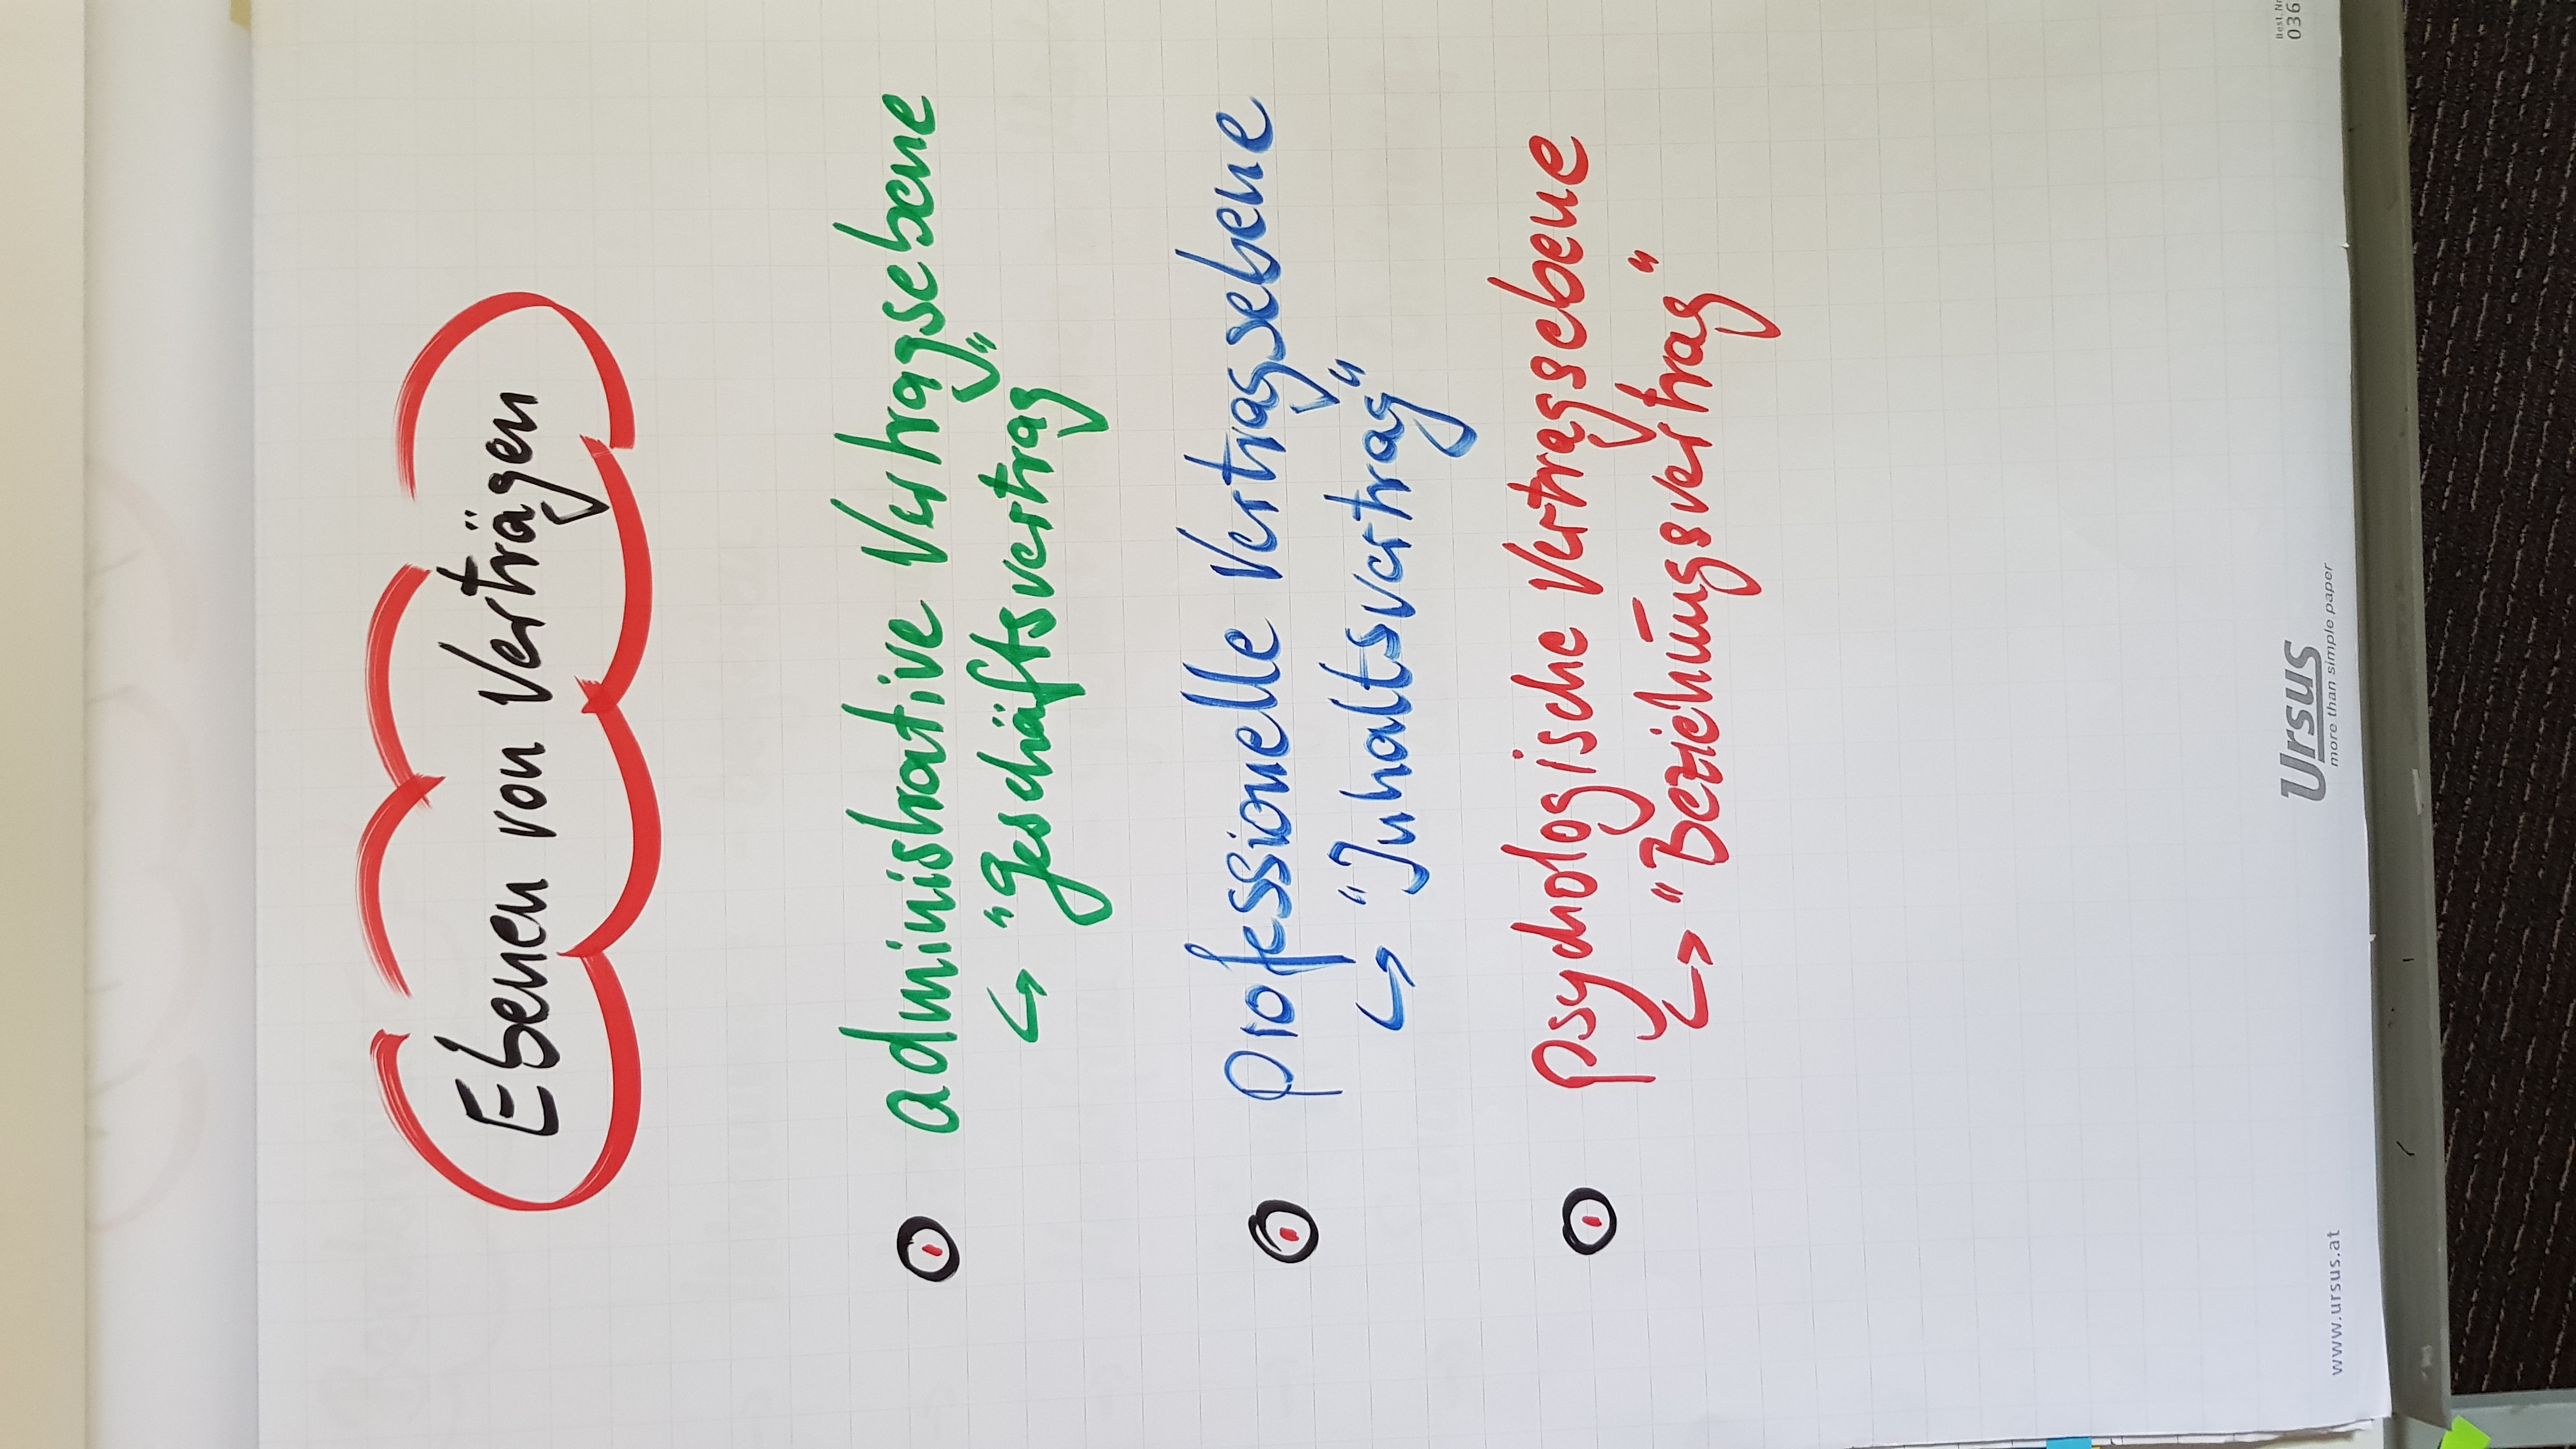 Ebenen von Verträgen
administrative Vertragsebene
↳ "Geschäftsvertrag"
professionelle Vertragsebene
↳ "Inhaltsvertrag"
psychologische Vertragsebene
↳ "Beziehungsvertrag"
Ursus
more than simple paper
www.ursus.at
Best.Nr
036